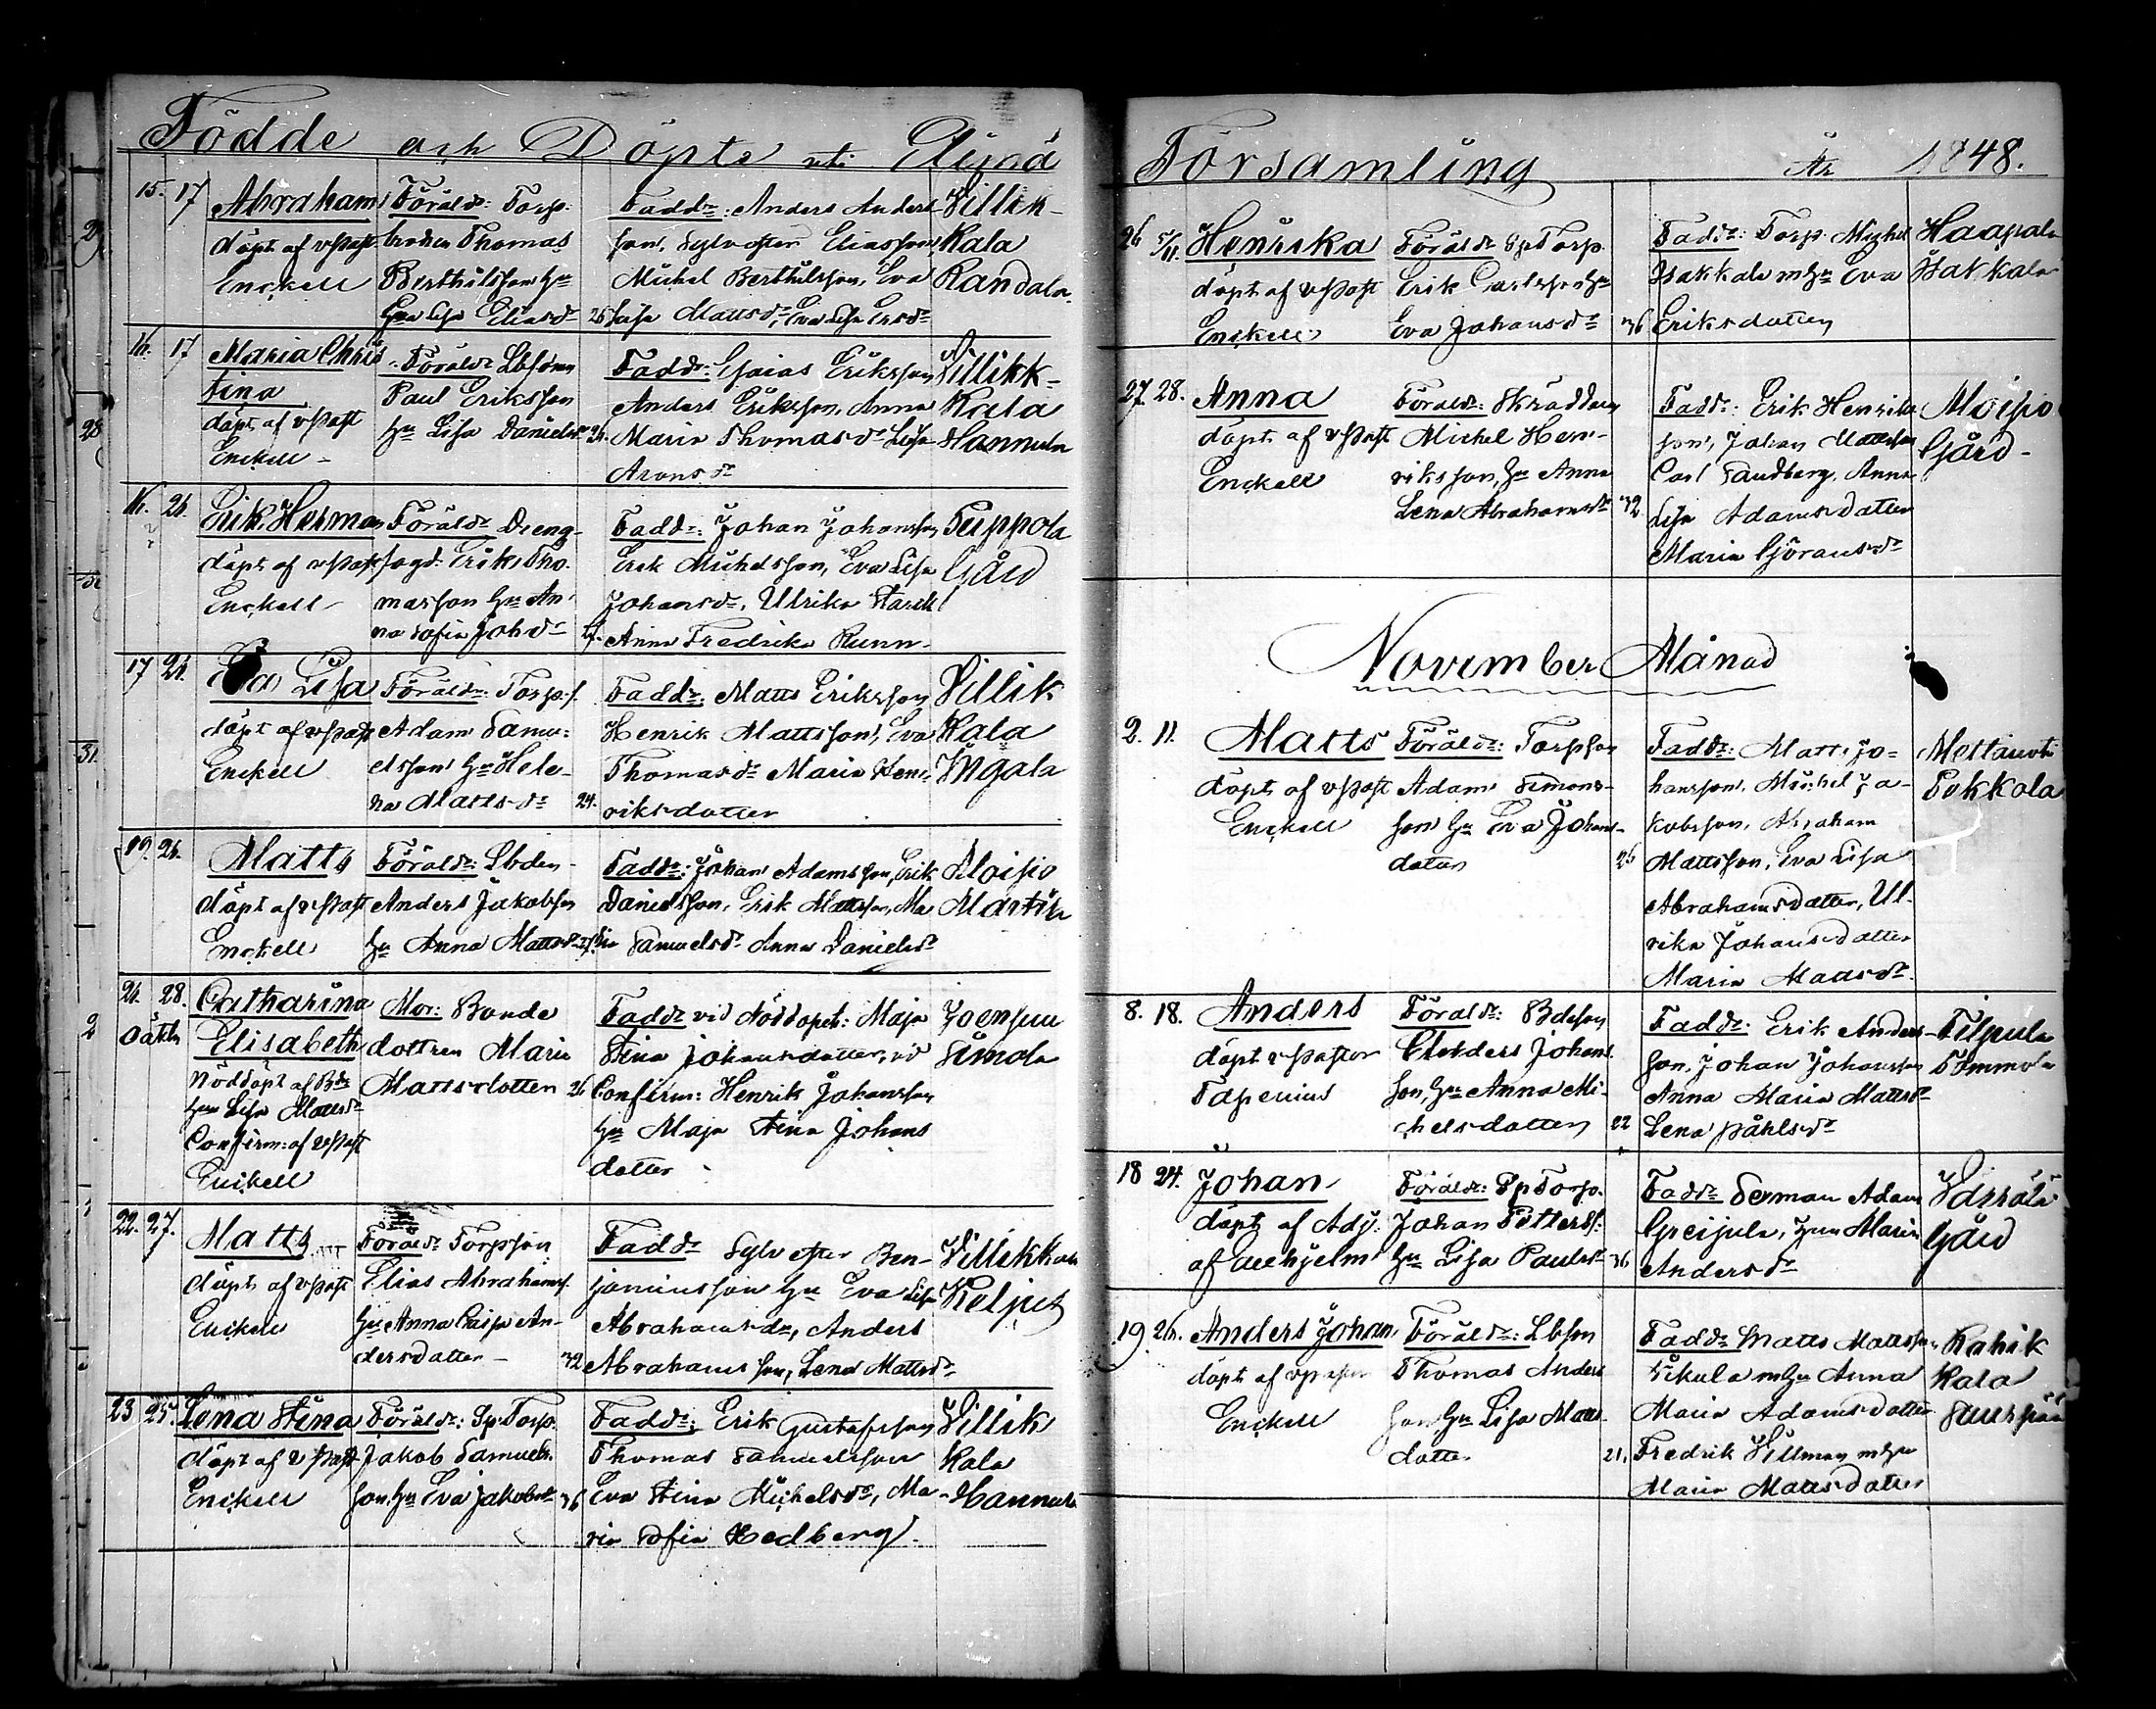 Födde och Döpte uti
15. 17
Abraham
döpt af vPast
Enckell
Föräldr: Torp.
brodren Thomas
Berthilsson hu
Eva Lisa Eliasdr 25
Faddr: Anders Anders-
son, Sylvester Eliasson,
Michel Berthilsson, Eva
Lisa Mattsdr, Eva Lisa Ersdr
Villik-
Kala
Randala
16. 17
Maria Chris
tina
döpt af vPast
Enckell
Föräldr
Paul Eriksson
hu Lisa Danielsdr
Faddr: Esaias Eriksson
Anders Eriksson, Anna
Maria Thomasdr Lisa
Aronsdr
Villikk-
Kala
Hannula
16. 26.
Erik Herman
döpt af vPast
Enckell
Föräldr Dreng-
fogd: Erik Tho-
masson hu An-
na Sofia Johdr
Faddr: Johan Johansson
Erik Michelsson, Eva Lisa
Johansdr, Ulrika Starck
Anna Fredrika
Puppola
Gård
17 26.
Eva Lisa
döpt af vPast
Enckell
Föräldr: Torp.s.
Adam Samu-
elsson hu Hele-
na Mattsdr 24.
Faddr: Matts Eriksson
Henrik Mattsson, Eva
Thomasdr Maria Hen-
riksdotter
Villik
Kala
Ingala
19. 26.
Matts
döpt af vPast
Enckell
Föräldr: Lbden
Anders Jakobson
hu Anna Mattsdr
Faddr: Johan Adamsson, Erik
Danielsson, Erik Mattsson, Ma
ria Samuelsdr Anna Danielsdr
Moisio
Martin
26. 28.
oäkta
Catharina
Elisabeth
Nöddöpt af Bde
hun Lisa Mattsdr
Confirm: af vPast
Enckell
Mor: Bonde
dottren Maria
Mattsdotter 26
Faddr vid Nöddopet: Maja
Stina Johansdotter, vid
Confirm: Henrik Johansson
hu Maja Stina Johans
dotter
Joensuu
Simola
22. 27.
Matts
döpt af vPast
Enckell
Föräldr Torpson
Elias Abrahams.
hu Anna Caisa An-
dersdotter 32
Faddr Sylvester Ben-
jaminsson hu Eva Lisa
Abrahamsdr, Anders
Abrahamsson, Lena Mattsdr
Villikkala
23 25.
Lena Stina
döpt af vPast
Enckell
Föräldr: Sp. Torp.
Jakob Samuels-
son hu Eva Jakobsdr 36
Faddr: Erik Gustafsson
Thomas Samuelsson
Eva Stina Michelsdr, Ma-
ria Sofia Hedberg
Villik
Kala
Hannula
Församling År 1848.
26 5/11.
Henrika
döpt af vPast
Enckell
Föräldr Sp Torp.
Erik Carlsson hu
Eva Johansdr 36
Faddr: Torp. Michel
Hakkala m hu Eva
Eriksdotter
Haapala
Hakkala
27. 28.
Anna
döpt af vPast
Enckell
Föräldr: Skräddaren
Michel Hen-
riksson, hu Anna
Lena Abrahamsdr 32
Faddr: Erik Henriks
son, Johan Mattsson
Carl Sandberg, Anna
Lisa Adamsdotter
Maria Göransdr
Moisio
Gård
November Månad
2. 11.
Matts
döpt af vPast
Enckell
Föräldr: Torpson
Adam Simons-
son hu Eva Johans-
dotter 26
Faddr: Matts Jo-
hansson, Michel Ja-
kobsson, Abraham
Mattsson, Eva Lisa
Abrahamsdotter, Ul-
rika Johansdotter
Maria Maasdr
8. 18.
Anders
döpt vPastor
Tapenius
Föräldr: Bdeson
Johans
son, hu Anna Mi-
chelsdotter 22
Faddr: Erik Anders-
son, Johan Johansson
Anna Maria Mattsdr
Lena Påhlsdr
Pilpula
Simmola
18 24.
Johan
döpt af Adj.
af Heehjelm
Föräldr: Sp Torp.
Johan Petterss.
hu Lisa Paulsdr 36
Faddr Herman Adam
hun Maria
Andersdr
Gård
19. 26.
Anders Johan
döpt af vPastor
Enckell
Föräldr: Lbson
Thomas Anders
son hu Lisa Matts
dotter 21.
Faddr Matts Mattsson
Sikula m hu Anna
Maria Adamsdotter
Fredrik Hillman m hu
Maria Mattsdotter
Kahik
Kala